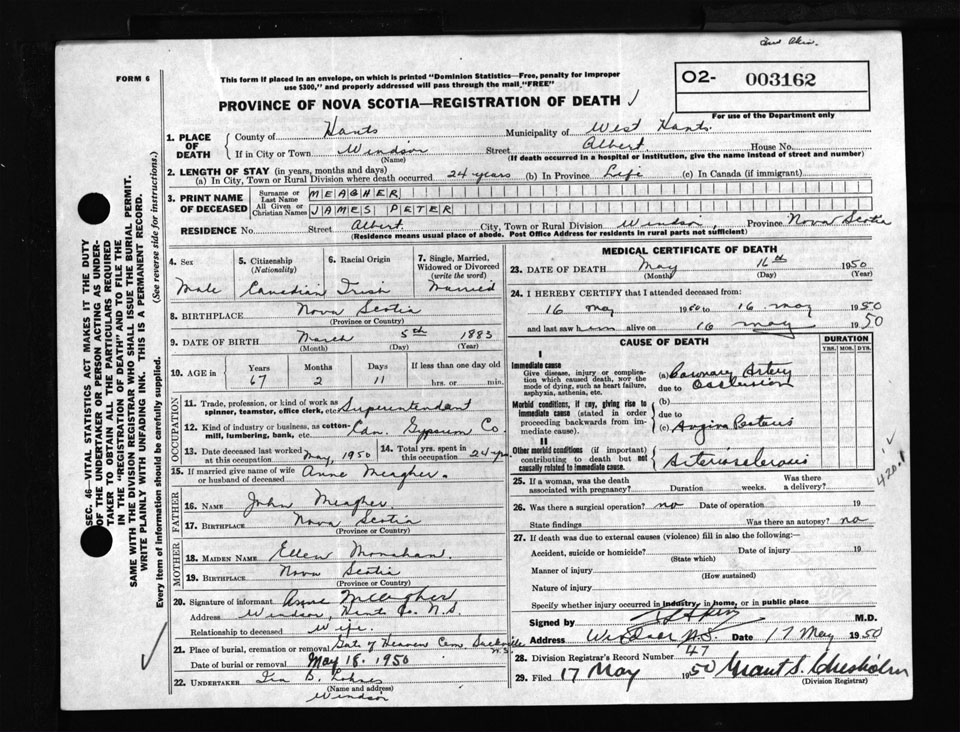 FORM 6
This form if placed in an envelope, on which is printed "Dominion Statistics—Free, penalty for improper
use $300," and properly addressed will pass through the mail "FREE"
PROVINCE OF NOVA SCOTIA—REGISTRATION OF DEATH ✓
O2- 003162
For use of the Department only
1. PLACE OF DEATH
County of Hants Municipality of West Hants.
If in City or Town Windsor Street Albert House No.
(Name) (If death occurred in a hospital or institution, give the name instead of street and number)
2. LENGTH OF STAY (in years, months and days)
(a) In City, Town or Rural Division where death occurred 24 years (b) In Province Life (c) In Canada (if immigrant)
3. PRINT NAME OF DECEASED
Surname or Last Name MEAGHER
All Given or Christian Names JAMES PETER
RESIDENCE No. Street Albert. City, Town or Rural Division Windsor Province Nova Scotia
(Residence means usual place of abode. Post Office Address for residents in rural parts not sufficient)
4. Sex 5. Citizenship (Nationality) 6. Racial Origin 7. Single, Married, Widowed or Divorced (write the word)
Male Canadian Irish Married
8. BIRTHPLACE Nova Scotia
(Province or Country)
9. DATE OF BIRTH March 5th 1883
(Month) (Day) (Year)
10. AGE in Years Months Days If less than one day old
67 2 11 hrs. or min.
OCCUPATION
11. Trade, profession or kind of work as spinner, teamster, office clerk, etc. Superintendant
12. Kind of industry or business, as cotton-mill, lumbering, bank, etc. Can. Gypsum Co.
13. Date deceased last worked at this occupation May, 1950 14. Total yrs. spent in this occupation 24 yrs
15. If married give name of wife or husband of deceased Anne Meagher.
FATHER
16. NAME John Meagher
17. BIRTHPLACE Nova Scotia
(Province or Country)
MOTHER
18. MAIDEN NAME Ellen Monahan.
19. BIRTHPLACE Nova Scotia
(Province or Country)
20. Signature of informant Anne Meagher
Address Windsor, Hants Co. N.S.
Relationship to deceased Wife.
21. Place of burial, cremation or removal Gate of Heaven Cem Sackville N.S.
Date of burial or removal May 18. 1950
22. UNDERTAKER Ira B.
(Name and address)
Windsor
MEDICAL CERTIFICATE OF DEATH
23. DATE OF DEATH May 16th 1950
(Month) (Day) (Year)
24. I HEREBY CERTIFY that I attended deceased from:
16 May 1950 to 16 May 1950
and last saw him alive on 16 May 1950
CAUSE OF DEATH
DURATION
YRS. MOS. DYS.
I
Immediate cause
Give disease, injury or complication which caused death, not the mode of dying, such as heart failure, asphyxia, asthenia, etc.
(a) Coronary Artery
due to Occlusion
Morbid conditions, if any, giving rise to immediate cause (stated in order proceeding backwards from immediate cause).
(b)
due to
(c) Angina Pectoris
II
Other morbid conditions (if important) contributing to death but not causally related to immediate cause.
Arteriosclerosis
420.1 ✓
25. If a woman, was the death associated with pregnancy? Duration weeks. Was there a delivery?
26. Was there a surgical operation? no Date of operation 19
State findings Was there an autopsy? no
27. If death was due to external causes (violence) fill in also the following:—
Accident, suicide or homicide? Date of injury 19
(State which)
Manner of injury
(How sustained)
Nature of injury
Specify whether injury occurred in industry, in home, or in public place
Signed by M.D.
Address Windsor N.S. Date 17 May 1950
28. Division Registrar's Record Number 47
29. Filed 17 May 1950 Grant S. Chisholm
(Division Registrar)
SEC. 46—VITAL STATISTICS ACT MAKES IT THE DUTY
OF THE UNDERTAKER OR PERSON ACTING AS UNDER-
TAKER TO OBTAIN ALL THE PARTICULARS REQUIRED
IN THE "REGISTRATION OF DEATH" AND TO FILE THE
SAME WITH THE DIVISION REGISTRAR WHO SHALL ISSUE THE BURIAL PERMIT.
WRITE PLAINLY WITH UNFADING INK. THIS IS A PERMANENT RECORD.
Every item of information should be carefully supplied. (See reverse side for instructions.)